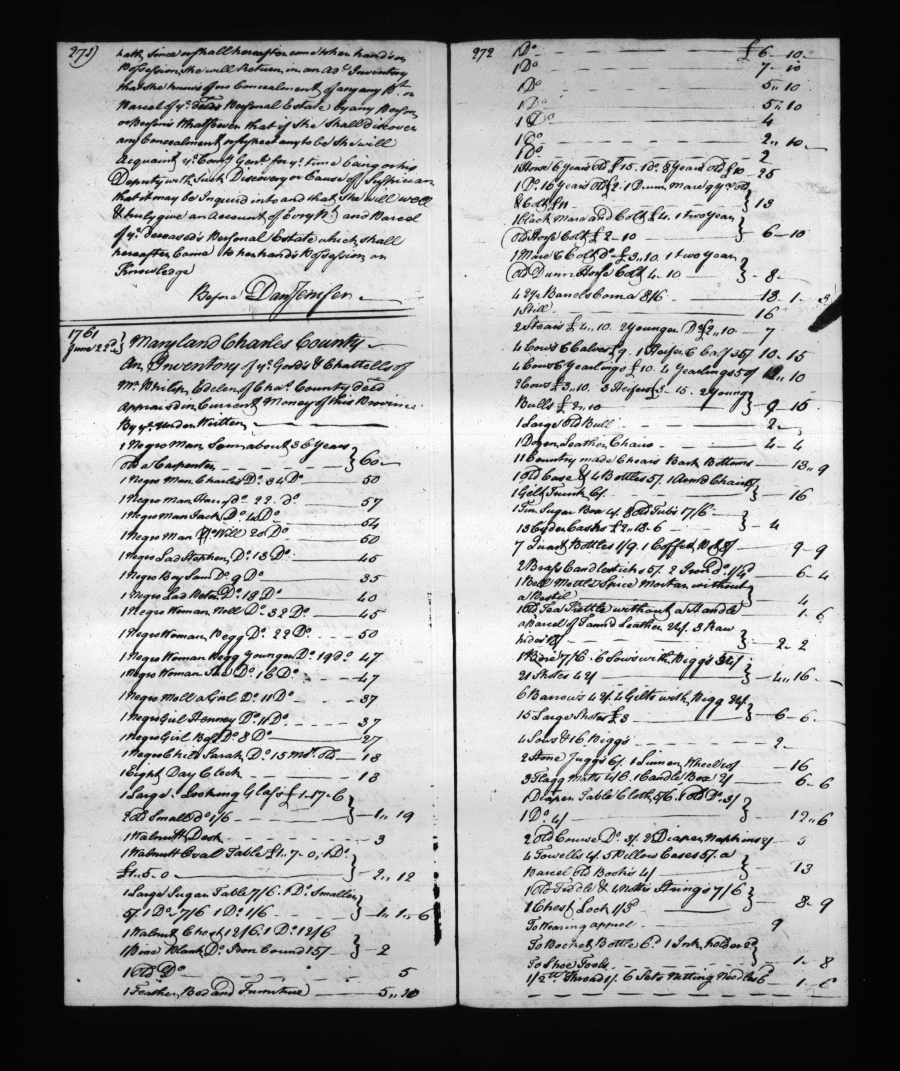 271)
hath, since or shall hereafter come to her hand's or
Possession, she will Return, in an Ad.l Inventory
that she knows of no Concealment of any any P.t or
Parcel of y.e Dec.ds Personal Estate by any Person
or Persons Whatsoever that if she shall discover
any Concealment or suspect any to be she will
Acquaint y.e Com.y Gen.l for y.e time being or his
Deputy with Such Discovery or Cause of Suspician
that it may be Inquir'd into and that she will well
& truly give an Account of Every P.t and Parcel
of y.e Deceased's Personal Estate which, shall
hereafter Come to her hand's Possession or
Knowledge
Before Dan Jenifer
1761
June 22.d } Maryland Charles County
An Inventory of y.e Good's & Chattells of
M.r Philip Edelen of Cha.s County dec'd
appraised in Current Money of this Province
By y.e Under Written
1 Negro Man, Sam about 36 Years
old a Carpenter } 60
1 Negro Man Charles D.o 34 D.o 50
1 Negro Man D.o 22 d.o 57
1 Negro Man Jack D.o 40 D.o 54
1 Negro Man Will 20 D.o 60
1 Negro Lad Stephen, D.o 13 D.o 45
1 Negro Boy Sam D.o 9 D.o 35
1 Negro Lad Peter D.o 18 D.o 40
1 Negro Woman Nell D.o 32 D.o 45
1 Negro Woman, Pegg D.o 22 D.o 50
1 Negro Woman Pegg Younger D.o 19 d.o 47
1 Negro Woman D.o 16 D.o 47
1 Negro Moll a Girl D.o 11 D.o 37
1 Negro Girl Henney D.o 11 D.o 37
1 Negro Girl Bess D.o 8 D.o 27
1 Negro Child Sarah, D.o 15 M.s old 18
1 Eight Day Clock 18
1 Large Looking Glass £1-17-6
2 old Small d.o 1/6 } 1,, 19
1 Walnutt Desk 3
1 Walnutt Oval Table £1-7-0, 1 D.o
£1..5-0 } 2,, 12
1 Large Sugar Table 7/6. 1 D.o Smaller
5/. 1 D.o 7/6 1 D.o 1/6 } 1,, 1,, 6
1 Walnut Chest 12/6. 1 D.o 12/6
1 Pine Plank D.o Iron Bound 15/ } 2
1 Old D.o 5
1 Feather Bed and Furniture 5,, 10
272
1 D.o £6-10-
1 D.o 7-10
1 D.o 5,, 10
1 D.o 5,, 10
1 D.o 4
1 D.o 2,, 10
1 D.o 2
1 Horse 6 Years Old £15. 1 d.o 8 Years Old £10 25
1 D.o 10 Years Old £2. 1 Dunn Mare 9 y.r old
& Colt £11 } 13
1 black Mare and Colt £4. 1 two Year
Old Horse Colt £2-10 } 6-10
1 Mare & Colt D.o £3,,10. 1 two Year
Old Dunn Horse Colt 4-10 } 8-
42 1/2 Barrels Corn a 8/6 18-1-3
1 Still 16
2 Steers £4,,10. 2 Younger D.o £2,,10 7
4 Cows & Calves £9. 1 Heifer & Calf 35/ 10-15
4 Cows & Yearlings £10. 4 Yearlings 50/ 12,,10
2 Cows £3,,10. 3 Heifers £3-15. 2 Young
Bulls £2,,10 } 9-15
1 Large Old Bull 2
1 Dozen Leather Chairs 4-4
11 Country made Chears Bark Bottoms 13,,9
1 Old Case & 4 Bottles 5/. 1 Arm'd Chair 5/
1 Gilt Trunk 6/ } 16
1 Tin Sugar Box 4/. 8 Old Tubs 17/6
13 Cyder Casks £2,,18-6 } 4
7 Quart Bottles 1/9. 1 Coffee 8/ 9-9
2 Brass Candlesticks 5/. 2 Iron d.o 1/4 6-4
1 Bell Mettle Spice Mortar without
a Pestil 4
1 Old Tea Kettle without a Handle 1-6
a Parcel of Tann'd Leather 24/. 3 Raw
hides 18/ } 2-2
6 Sows with Pigg's
21 Shotes 42/ } 4,,16
6 Barrows 42/. 4 Gilts with Pigg 24/.
15 Large Shotes £3 } 6-6
4 Sows & 16 Pigg's 2
2 Stone Jugg's 6/. 1 Linnen Wheel 10/ 16
3 Flagg Matts 4/6. 1 Candle Box 2/ 6-6
1 Diaper Table Cloth 5/6. 1 Old D.o 3/
1 D.o 4/ } 12,,6
2 Old Course D.o 3/. 2 Diaper Napkins 2/ 5
4 Towells 4/. 5 Pillow Cases 5/. a
Parcel Old Book's 4/ } 13
1 Old Fiddle & 4 Strings 7/6
1 Chest Lock 1/3 } 8-9
To Wearing apprel 9
To Pocket Bottle 6.d 1 Ink holder 2.d
To Shoe Tools } 1-8
Thread 1/. 6 Sets Nitting Needles 6.d 1-6